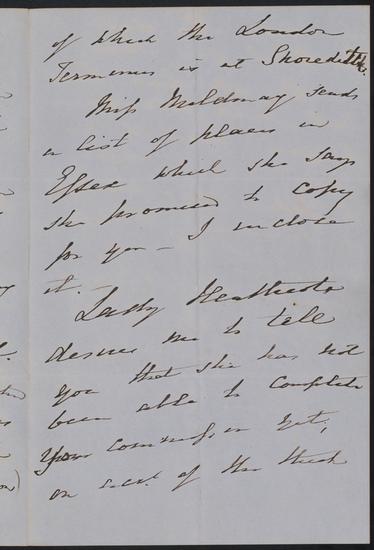 of which the London
Terminus is at Shoreditch.
Miss Mildmay sends
a list of places in
Essex which she says
she promised to copy
for you – I inclose
it. –
Lady Heathcote
desires me to tell
you that she has not
been able to complete
your commission yet,
on acct. of the thick